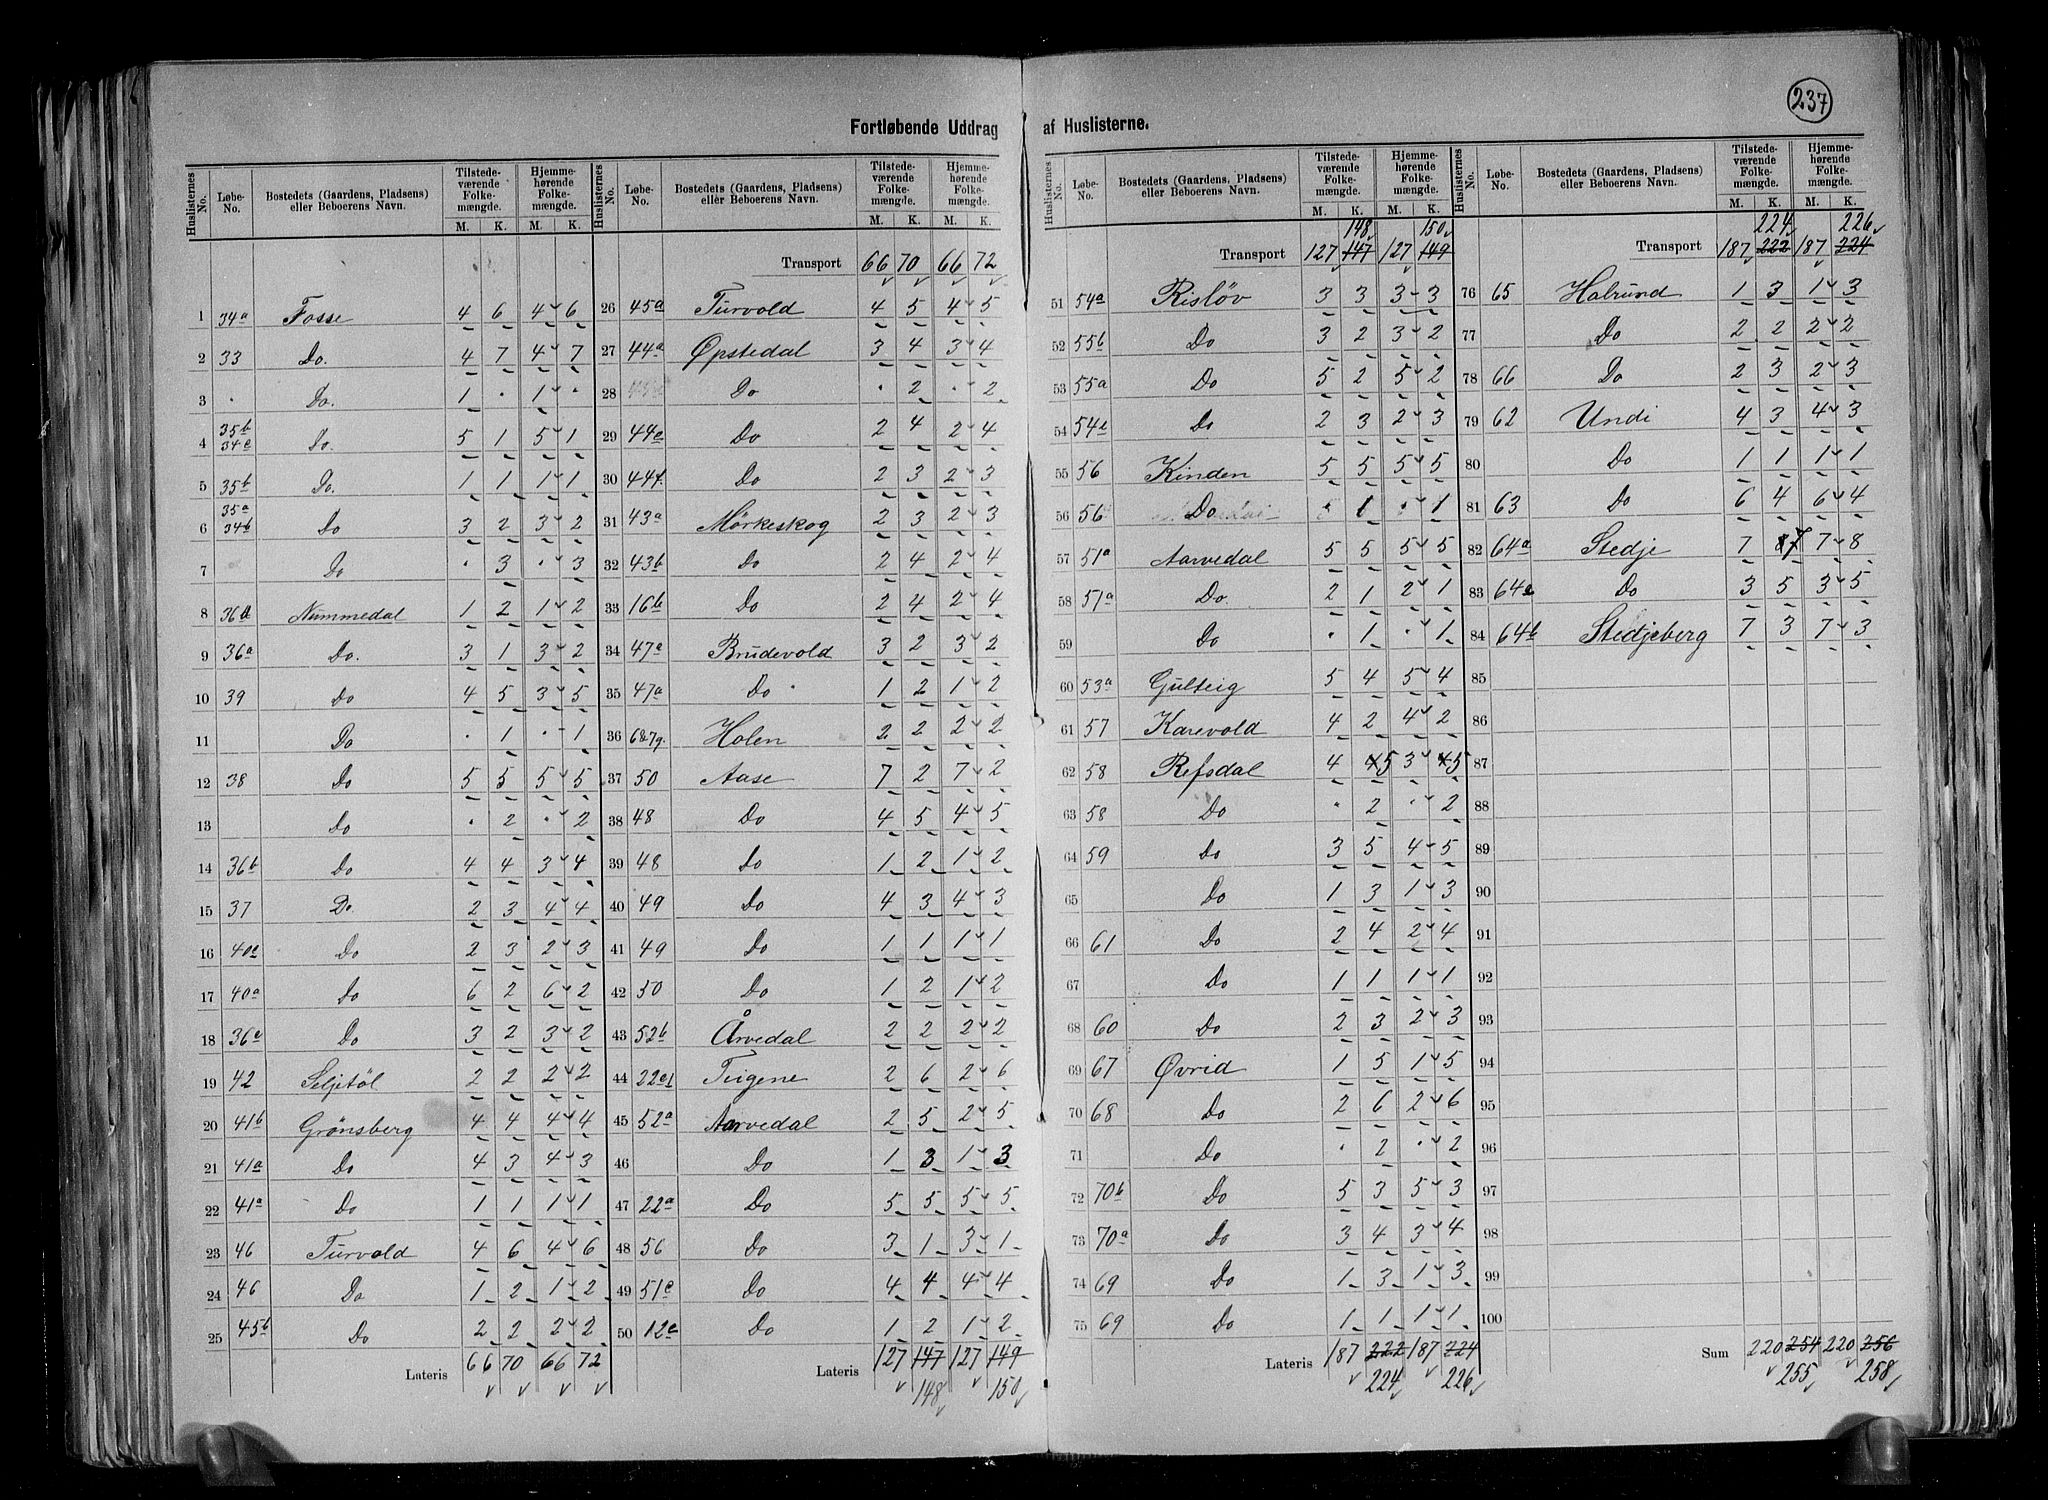 237
Fortløbende Uddrag af Huslisterne.
Huslisternes No. Løbe-No. Bostedets (Gaardens, Pladsens) eller Beboerens Navn. Tilstedeværende Folkemængde. M. K. Hjemmehørende Folkemængde. M. K.
1 34a Fosse 4 6 4 6
2 33 Do. 4 7 4 7
3 . Do. 1 . 1 .
4 35b 34c Do. 5 1 5 1
5 35b Do. 1 1 1 1
6 35a 34b Do 3 2 3 2
7 Do . 3 . 3
8 36d Nummedal 1 2 1 2
9 36a Do. 3 1 3 2
10 39 Do 4 5 3 5
11 Do . 1 . 1
12 38 Do 5 5 5 5
13 Do . 2 . 2
14 36b Do 4 4 3 4
15 37 Do. 2 3 4 4
16 40a Do 2 3 2 3
17 40a Do 6 2 6 2
18 36c Do 3 2 3 2
19 42 Seljetöl 2 2 2 2
20 41b Grönsberg 4 4 4 4
21 41a Do 4 3 4 3
22 41a Do 1 1 1 1
23 46 Turvold 4 6 4 6
24 46 Do 1 2 1 2
25 45b Do 2 2 2 2
Lateris 66 70 66 72
Huslisternes No. Løbe-No. Bostedets (Gaardens, Pladsens) eller Beboerens Navn. Tilstedeværende Folkemængde. M. K. Hjemmehørende Folkemængde. M. K.
Transport 66 70 66 72
26 45a Turvold 4 5 4 5
27 44a Øpstedal 3 4 3 4
28 Do . 2 . 2
29 44c Do 2 4 2 4
30 44f Do 2 3 2 3
31 43a Mørkeskog 2 3 2 3
32 43b Do 2 4 2 4
33 16b Do 2 4 2 4
34 47a Brudevold 3 2 3 2
35 47a Do 1 2 1 2
36 Holen 2 2 2 2
37 50 Aase 7 2 7 2
38 48 Do 4 5 4 5
39 48 Do 1 2 1 2
40 49 Do 4 3 4 3
41 49 Do 1 1 1 1
42 50 Do 1 2 1 2
43 52b Årvedal 2 2 2 2
44 Tugene 2 6 2 6
45 52a Aarvedal 2 5 2 5
46 Do 1 3 1 3
47 22a Do 5 5 5 5
48 56 Do 3 1 3 1
49 51c Do 4 4 4 4
50 12a Do 1 2 1 2
Lateris 127 147 127 149
148 150
Huslisternes No. Løbe-No. Bostedets (Gaardens, Pladsens) eller Beboerens Navn. Tilstedeværende Folkemængde. M. K. Hjemmehørende Folkemængde. M. K.
148 150
Transport 127 147 127 149
51 54a Risløv 3 3 3 3
52 55b Do 3 2 3 2
53 55a Do 5 2 5 2
54 54b Do 2 3 2 3
55 56 Kinden 5 5 5 5
56 56 Do . 1 . 1
57 51a Aarvedal 5 5 5 5
58 51a Do. 2 1 2 1
59 Do . 1 . 1
60 53a Gulteig 5 4 5 4
61 57 Karevold 4 2 4 2
62 58 Refsdal 4 4 5 3 4 5
63 58 Do . 2 . 2
64 59 Do 3 5 4 5
65 Do 1 3 1 3
66 61 Do 2 4 2 4
67 Do 1 1 1 1
68 60 Do 2 3 2 3
69 67 Øvrid 1 5 1 5
70 68 Do 2 6 2 6
71 Do . 2 . 2
72 70b Do 5 3 5 3
73 70a Do 3 4 3 4
74 69 Do 1 3 1 3
75 69 Do 1 1 1 1
Lateris 187 222 187 224
224 226
Huslisternes No. Løbe-No. Bostedets (Gaardens, Pladsens) eller Beboerens Navn. Tilstedeværende Folkemængde. M. K. Hjemmehørende Folkemængde. M. K.
224 226
Transport 187 222 187 224
76 65 Halrund 1 3 1 3
77 Do 2 2 2 2
78 66 Do 2 3 2 3
79 62 Undi 4 3 4 3
80 Do 1 1 1 1
81 63 Do 6 4 6 4
82 64a Stedje 7 8 7 7 8
83 64c Do 3 5 3 5
84 64b Stedjeberg 7 3 7 3
85
86
87
88
89
90
91
92
93
94
95
96
97
98
99
100
Sum 220 254 220 256
255 258